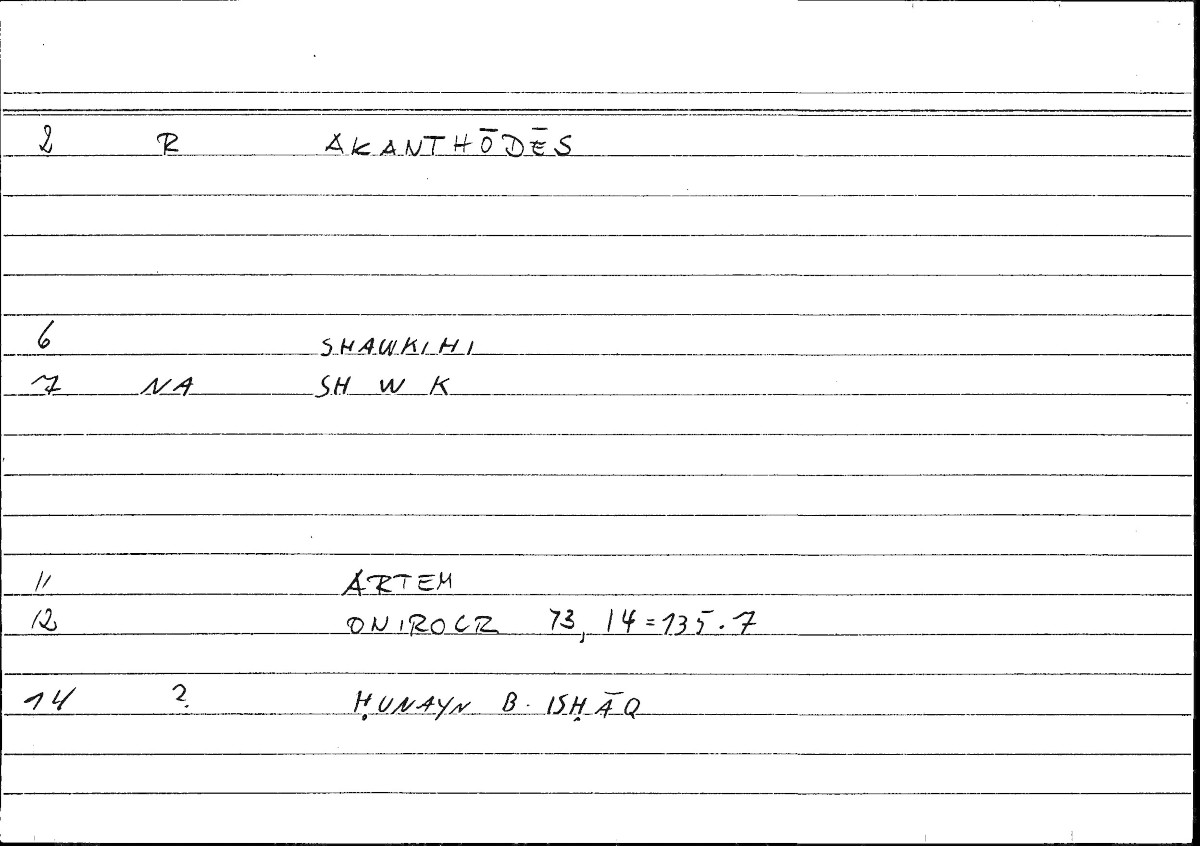 2 R AKANTHŌDĒS
6 SHAWKIHI
7 NA SH W K
11 ARTEM
12 ONIROCR 73, 14 = 135.7
14 ? ḤUNAYN B. ISḤĀQ